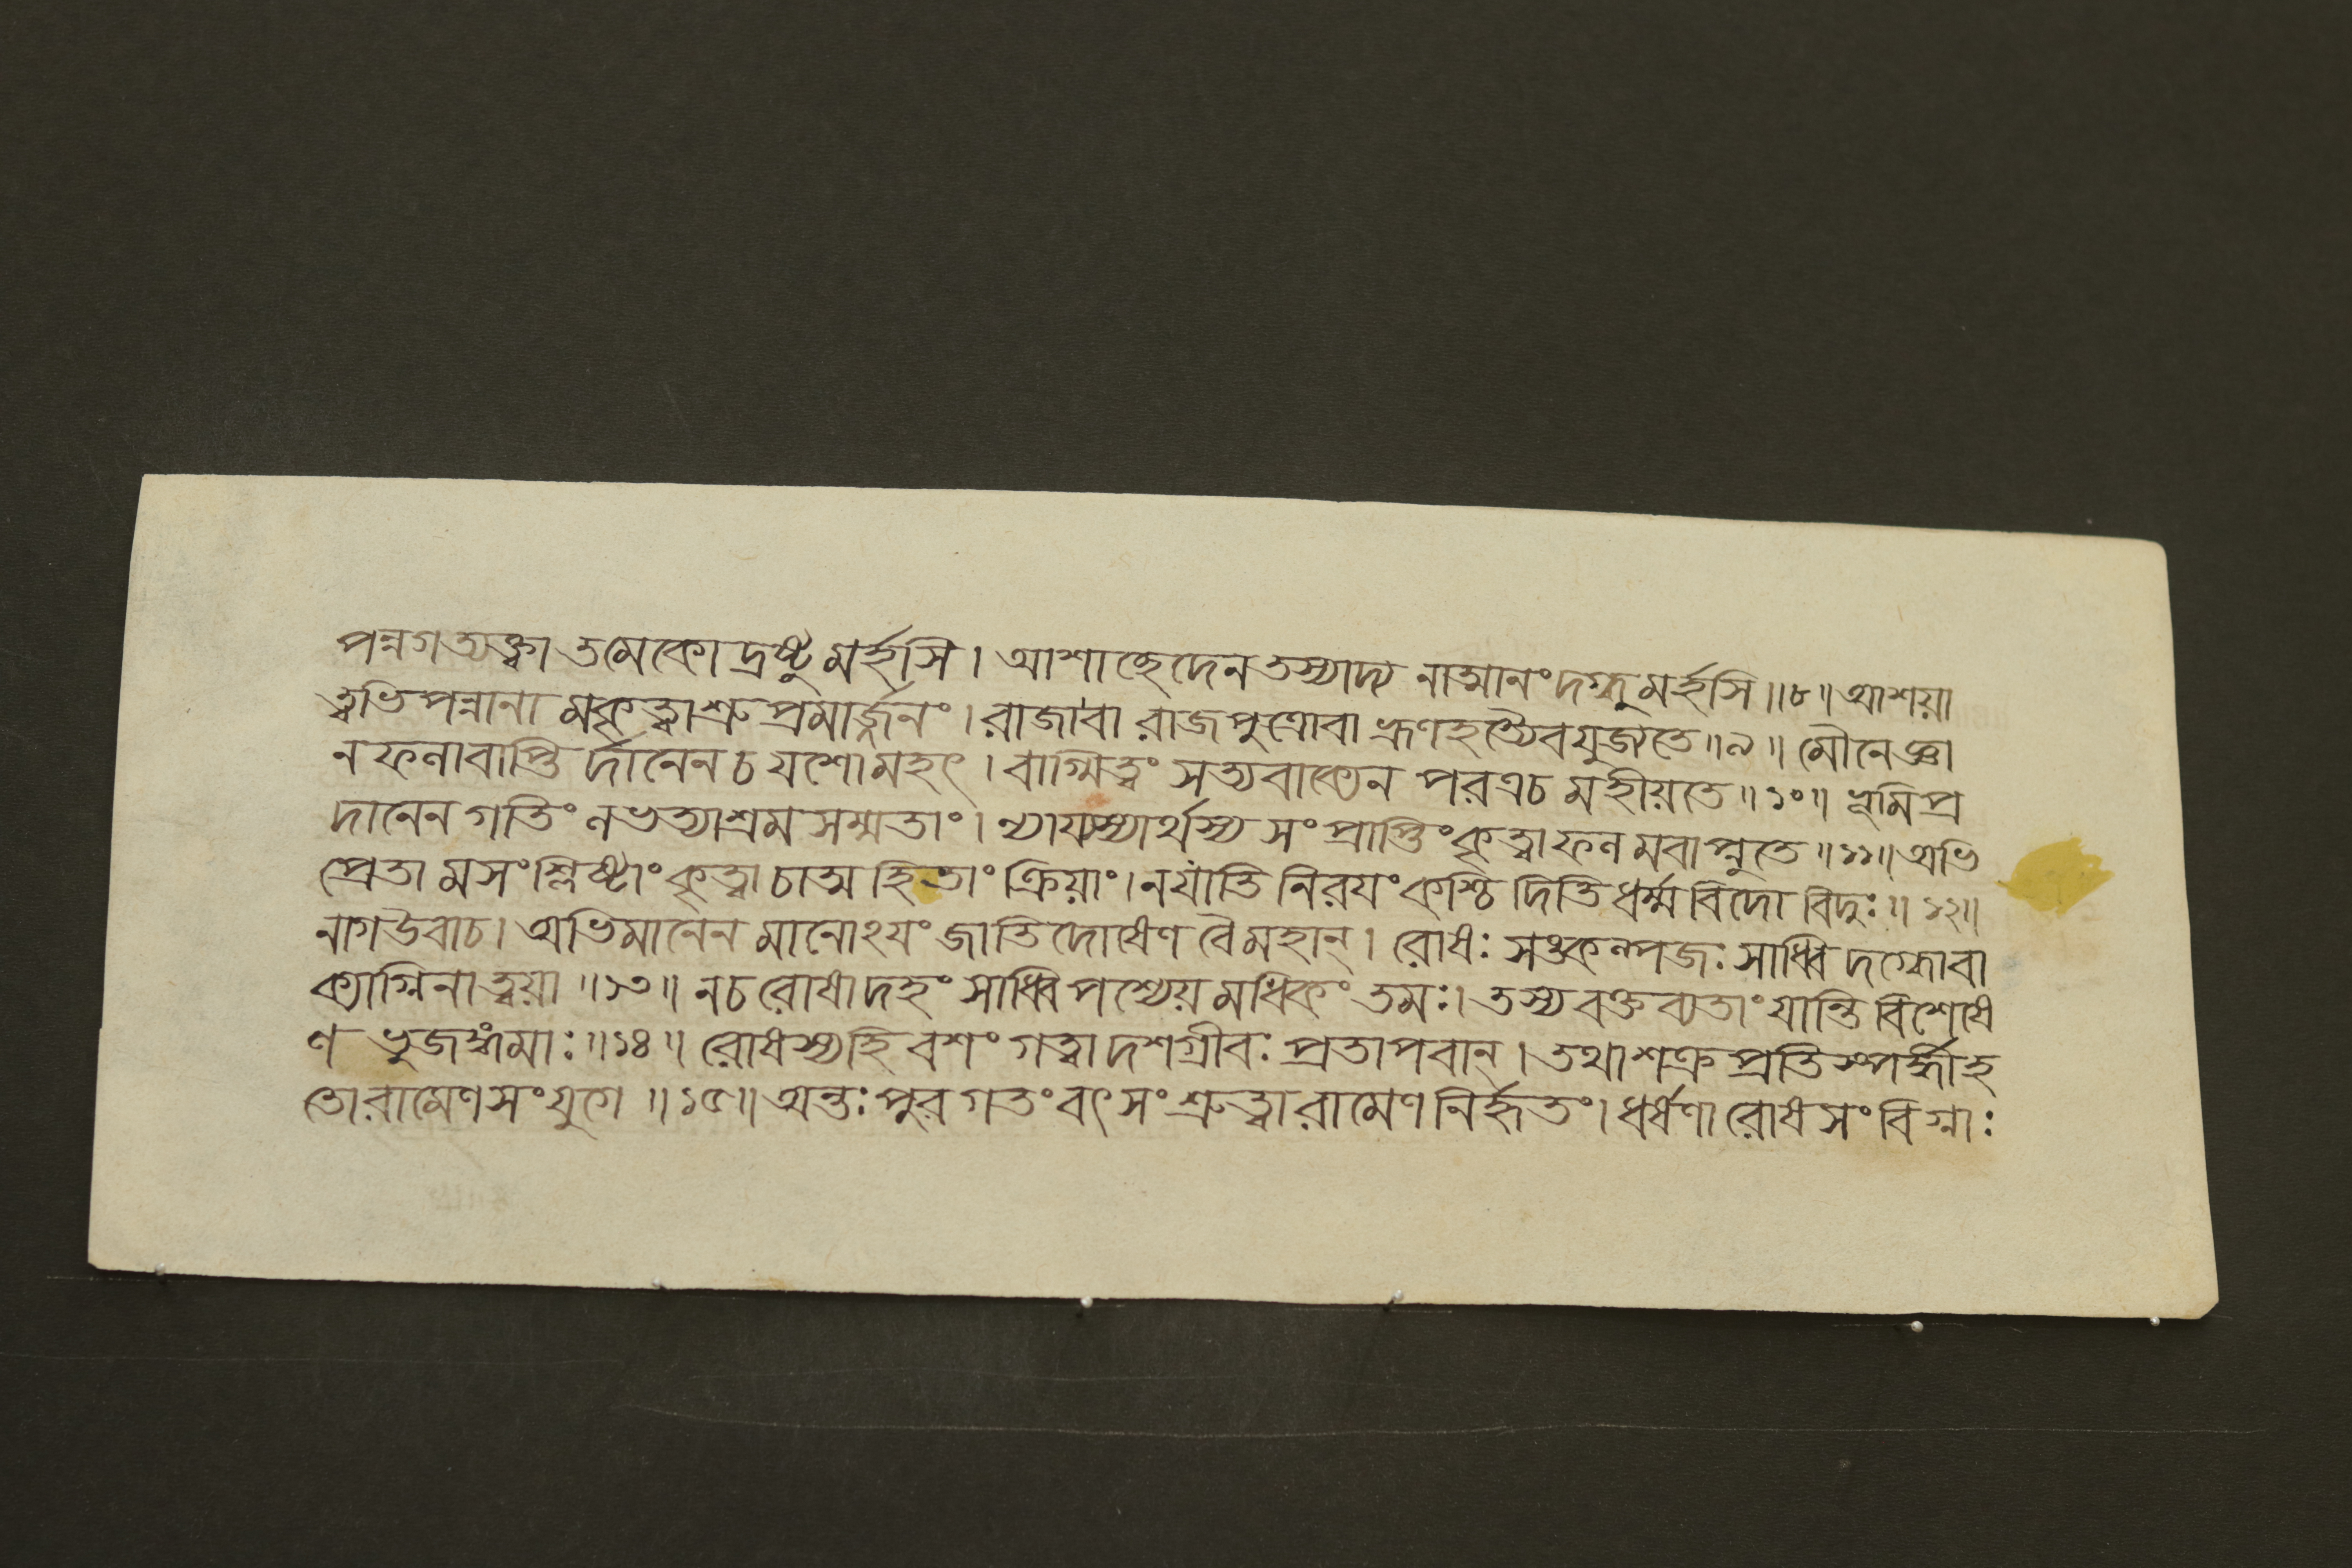 পন্নগ ত্যক্ত্বা তমেকো দ্রষ্টুমর্হসি। আশাচ্ছেদেন তস্যাদ্য নাত্মানং দগ্ধুমর্হসি ॥৮॥ আশয়া
ত্বভিপন্নানামকৃত্বাশ্রুপ্রমার্জ্জনং। রাজা বা রাজপুত্রো বা ভ্রূণহত্যৈব যুজ্যতে ॥৯॥ মৌনেজ্ঞা
ন ফলাবাপ্তির্দানেন চ যশো মহৎ। বাগ্মিত্বং সত্যবাক্যেন পরত্র চ মহীয়তে ॥১০॥ ভূমিপ্র
দানেন গতিং লভত্যাশ্রমসম্মতাং। ন্যায্যস্যার্থস্য সংপ্রাপ্তিং কৃত্বা ফলমবাপ্নুতে ॥১১॥ অভি
প্রেতামসংশ্লিষ্টাং কৃত্বা চাত্মহিতাং ক্রিয়াং। ন যাতি নিরয়ং কশ্চিদিতি ধর্ম্মবিদো বিদুঃ ॥১২॥
নাগ উবাচ। অভিমানেন মানোঽয়ং জাতিদোষেণ বৈ মহান্। রোষঃ সঙ্কল্পজঃ সাধ্বি দগ্ধো বা
ক্যাগ্নিনা ত্বয়া ॥১৩॥ ন চ রোষাদহং সাধ্বি পশ্যেয়মধিকং তমঃ। তস্য বক্তব্যতাং যান্তি বিশেষে
ণ ভুজঙ্গমাঃ ॥১৪॥ রোষস্য হি বশং গত্বা দশগ্রীবঃ প্রতাপবান্। তথা শক্রপ্রতিস্পর্দ্ধী হ
তো রামেণ সংযুগে ॥১৫॥ অন্তঃপুরগতং বৎসং শ্রুত্বা রামেণ নির্হৃতং। ধর্ষণারোষসংবিগ্নাঃ